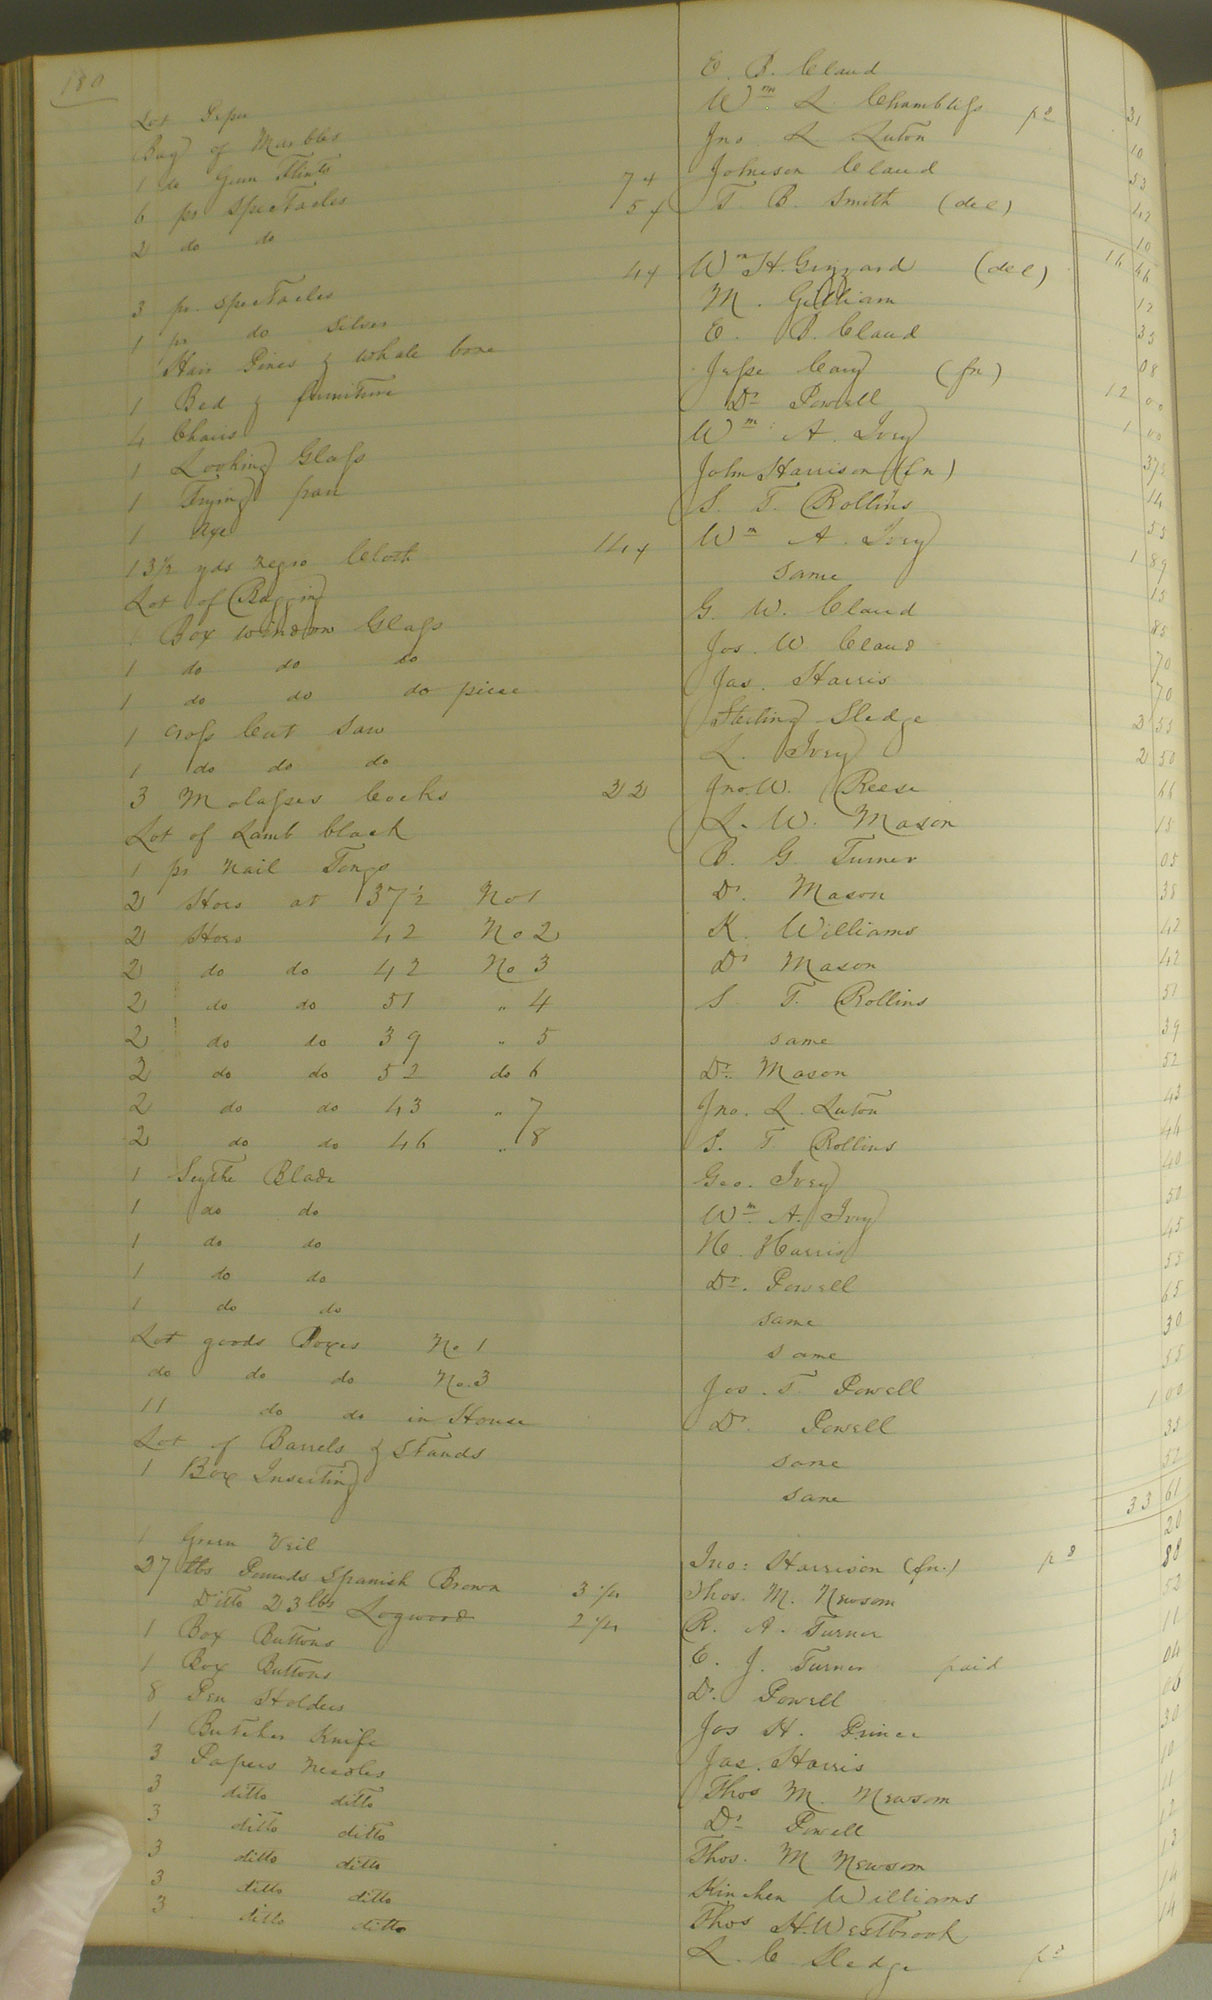 180
Lot E. B. Claud 31
Bag of Marbles Wm L. Chambliss pd 10
1 do Gun Flints Jno L. Luton 53
6 pr Spectacles 7x Johnson Claud 42
2 do do 5x T. B. Smith (del) 10
16 46
3 pr. Spectacles 4x Wm H. Grizzard (del) 12
1 pr do Silver M. Gilliam 35
Hair Pines & whale bone E. B. Claud 08
1 Bed & furniture Jesse Cary (fn) 12 00
4 Chairs Dr Powell 1 00
1 Looking Glass Wm A. Ivey 37½
1 Frying pan John Harrison (fn) 14
1 Axe S. T. Rollins 55
13½ yds negro Cloth 14x Wm A. Ivey 1 89
Lot of Bagging same 15
1 Box window Glass G. W. Claud 85
1 do do do Jos. W. Claud 70
1 do do do piece Jas. Harris 70
1 Cross Cut Saw Sterling Sledge 2 55
1 do do do L. Ivey 2 50
3 Molasses Cocks 22 Jno. W. Reese 66
Lot of Lamb black L. W. Mason 15
1 pr Nail Tongs B. G. Turner 05
2 Hoes at 37½ No 1 Dr Mason 38
2 Hoes 42 No 2 K. Williams 42
2 do do 42 No 3 Dr Mason 42
2 do do 51 " 4 S. T. Rollins 51
2 do do 39 " 5 same 39
2 do do 52 do 6 Dr. Mason 52
2 do do 43 " 7 Jno. L. Luton 43
2 do do 46 " 8 S. T. Rollins 46
1 Sythe Blade Geo. Ivey 40
1 do do Wm A. Ivey 50
1 do do H. Harris 45
1 do do Dr. Powell 55
1 do do same 65
Lot goods Boxes No 1 same 30
do do do No. 3 Jos. T. Powell 55
11 do do in House Dr. Powell 1 00
Lot of Barrels & Stands same 35
1 Box Inserting same 52
33 61
1 Green Veil Jno: Harrison (fn.) pd 20
27 lbs Pounds Spanish Brown 3 ¼ Thos. M. Newsom 88
Ditto 23 lbs Logwood 2 ¼ R. A. Turner 52
1 Box Buttons E. J. Turner paid 11
1 Box Buttons Dr. Powell 04
8 Pen Holders Jos H. Prince 06
1 Butcher Knife Jas. Harris 30
3 Papers Needles Thos M. Newsom 10
3 ditto ditto Dr Powell 11
3 ditto ditto Thos. M Newsom 12
3 ditto ditto Kinchen Williams 13
3 ditto ditto Thos H. Westbrook 14
3 ditto ditto L. C. Sledge pd 14